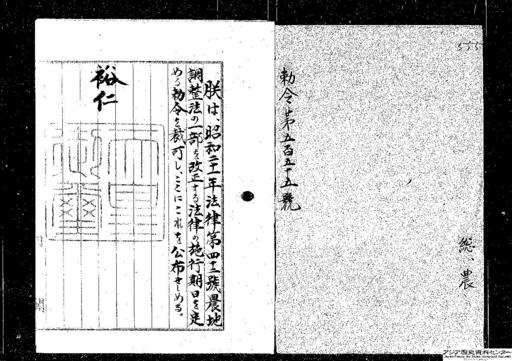 555
勅令第五百五十五號
総、農
朕は、昭和二十一年法律第四十二號農地
調整法の一部を改正する法律の施行期日を定
める勅令を裁可し、ここにこれを公布せしめる。
裕仁
アジア歴史資料センター